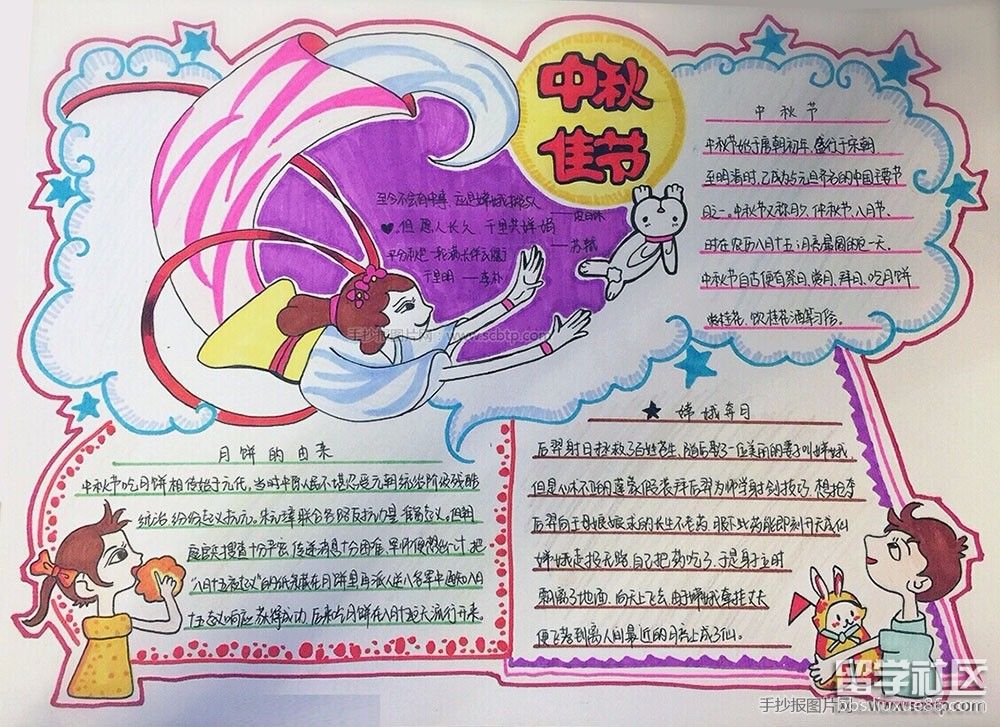 中秋
佳节
中秋节
中秋节始于唐朝初年，盛行于宋朝，
至明清时，已成为与元旦齐名的中国主要节
日之一。中秋节又称月夕、仲秋节、八月节，
时在农历八月十五；月亮最圆的一天。
中秋节自古便有祭月、赏月、拜月、吃月饼
赏桂花、饮桂花酒等习俗。
至今不会
但愿人长久，千里共婵娟
——苏轼
平分秋色一轮满 长伴云衢
千里明 ——李朴
手抄报图片网：www.scbtp.com
月饼的由来
中秋节吃月饼相传始于元代。当时中原人民不堪忍受元朝统治阶级残酷
统治 纷纷起义抗元。朱元璋联合各路反抗力量 准备起义。但朝
庭官兵搜查十分严密，传递消息十分困难。军师便想出一计，把
"八月十五夜起义"的纸条藏在月饼里 再派人送入各军中通知八月
十五起义响应 获得成功，后来吃月饼在八月十五天流行开来。
嫦娥奔月
后羿射日拯救了百姓苍生，随后娶了一位美丽的妻子叫嫦娥。
但是心术不正的蓬蒙假装拜后羿为师学射剑技巧，想抢夺
后羿向王母娘娘求的长生不老药，服下此药能即刻升天成仙
嫦娥走投无路，自己把药吃了，于是身子立时
飘离了地面，向天上飞去。由于嫦娥牵挂丈夫
便飞落到离人间最近的月亮上成了仙。
留学社区
手抄报图片网
bbs.liuxue86.com